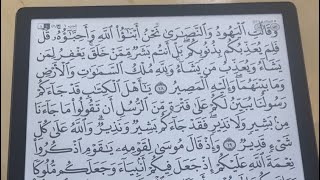 وَقَالَتِ ٱلۡيَهُودُ وَٱلنَّصَٰرَىٰ نَحۡنُ أَبۡنَٰٓؤُاْ ٱللَّهِ وَأَحِبَّٰٓؤُهُۥۚ قُلۡ
فَلِمَ يُعَذِّبُكُم بِذُنُوبِكُمۖ بَلۡ أَنتُم بَشَرٞ مِّمَّنۡ خَلَقَۚ يَغۡفِرُ لِمَن
يَشَآءُ وَيُعَذِّبُ مَن يَشَآءُۚ وَلِلَّهِ مُلۡكُ ٱلسَّمَٰوَٰتِ وَٱلۡأَرۡضِ
وَمَا بَيۡنَهُمَاۖ وَإِلَيۡهِ ٱلۡمَصِيرُ ١٨ يَٰٓأَهۡلَ ٱلۡكِتَٰبِ قَدۡ جَآءَكُمۡ
رَسُولُنَا يُبَيِّنُ لَكُمۡ عَلَىٰ فَتۡرَةٖ مِّنَ ٱلرُّسُلِ أَن تَقُولُواْ مَا جَآءَنَا
مِنۢ بَشِيرٖ وَلَا نَذِيرٖۖ فَقَدۡ جَآءَكُم بَشِيرٞ وَنَذِيرٞۗ وَٱللَّهُ عَلَىٰ كُلِّ
شَيۡءٖ قَدِيرٞ ١٩ وَإِذۡ قَالَ مُوسَىٰ لِقَوۡمِهِۦ يَٰقَوۡمِ ٱذۡكُرُواْ
نِعۡمَةَ ٱللَّهِ عَلَيۡكُمۡ إِذۡ جَعَلَ فِيكُمۡ أَنۢبِيَآءَ وَجَعَلَكُم مُّلُوكٗا